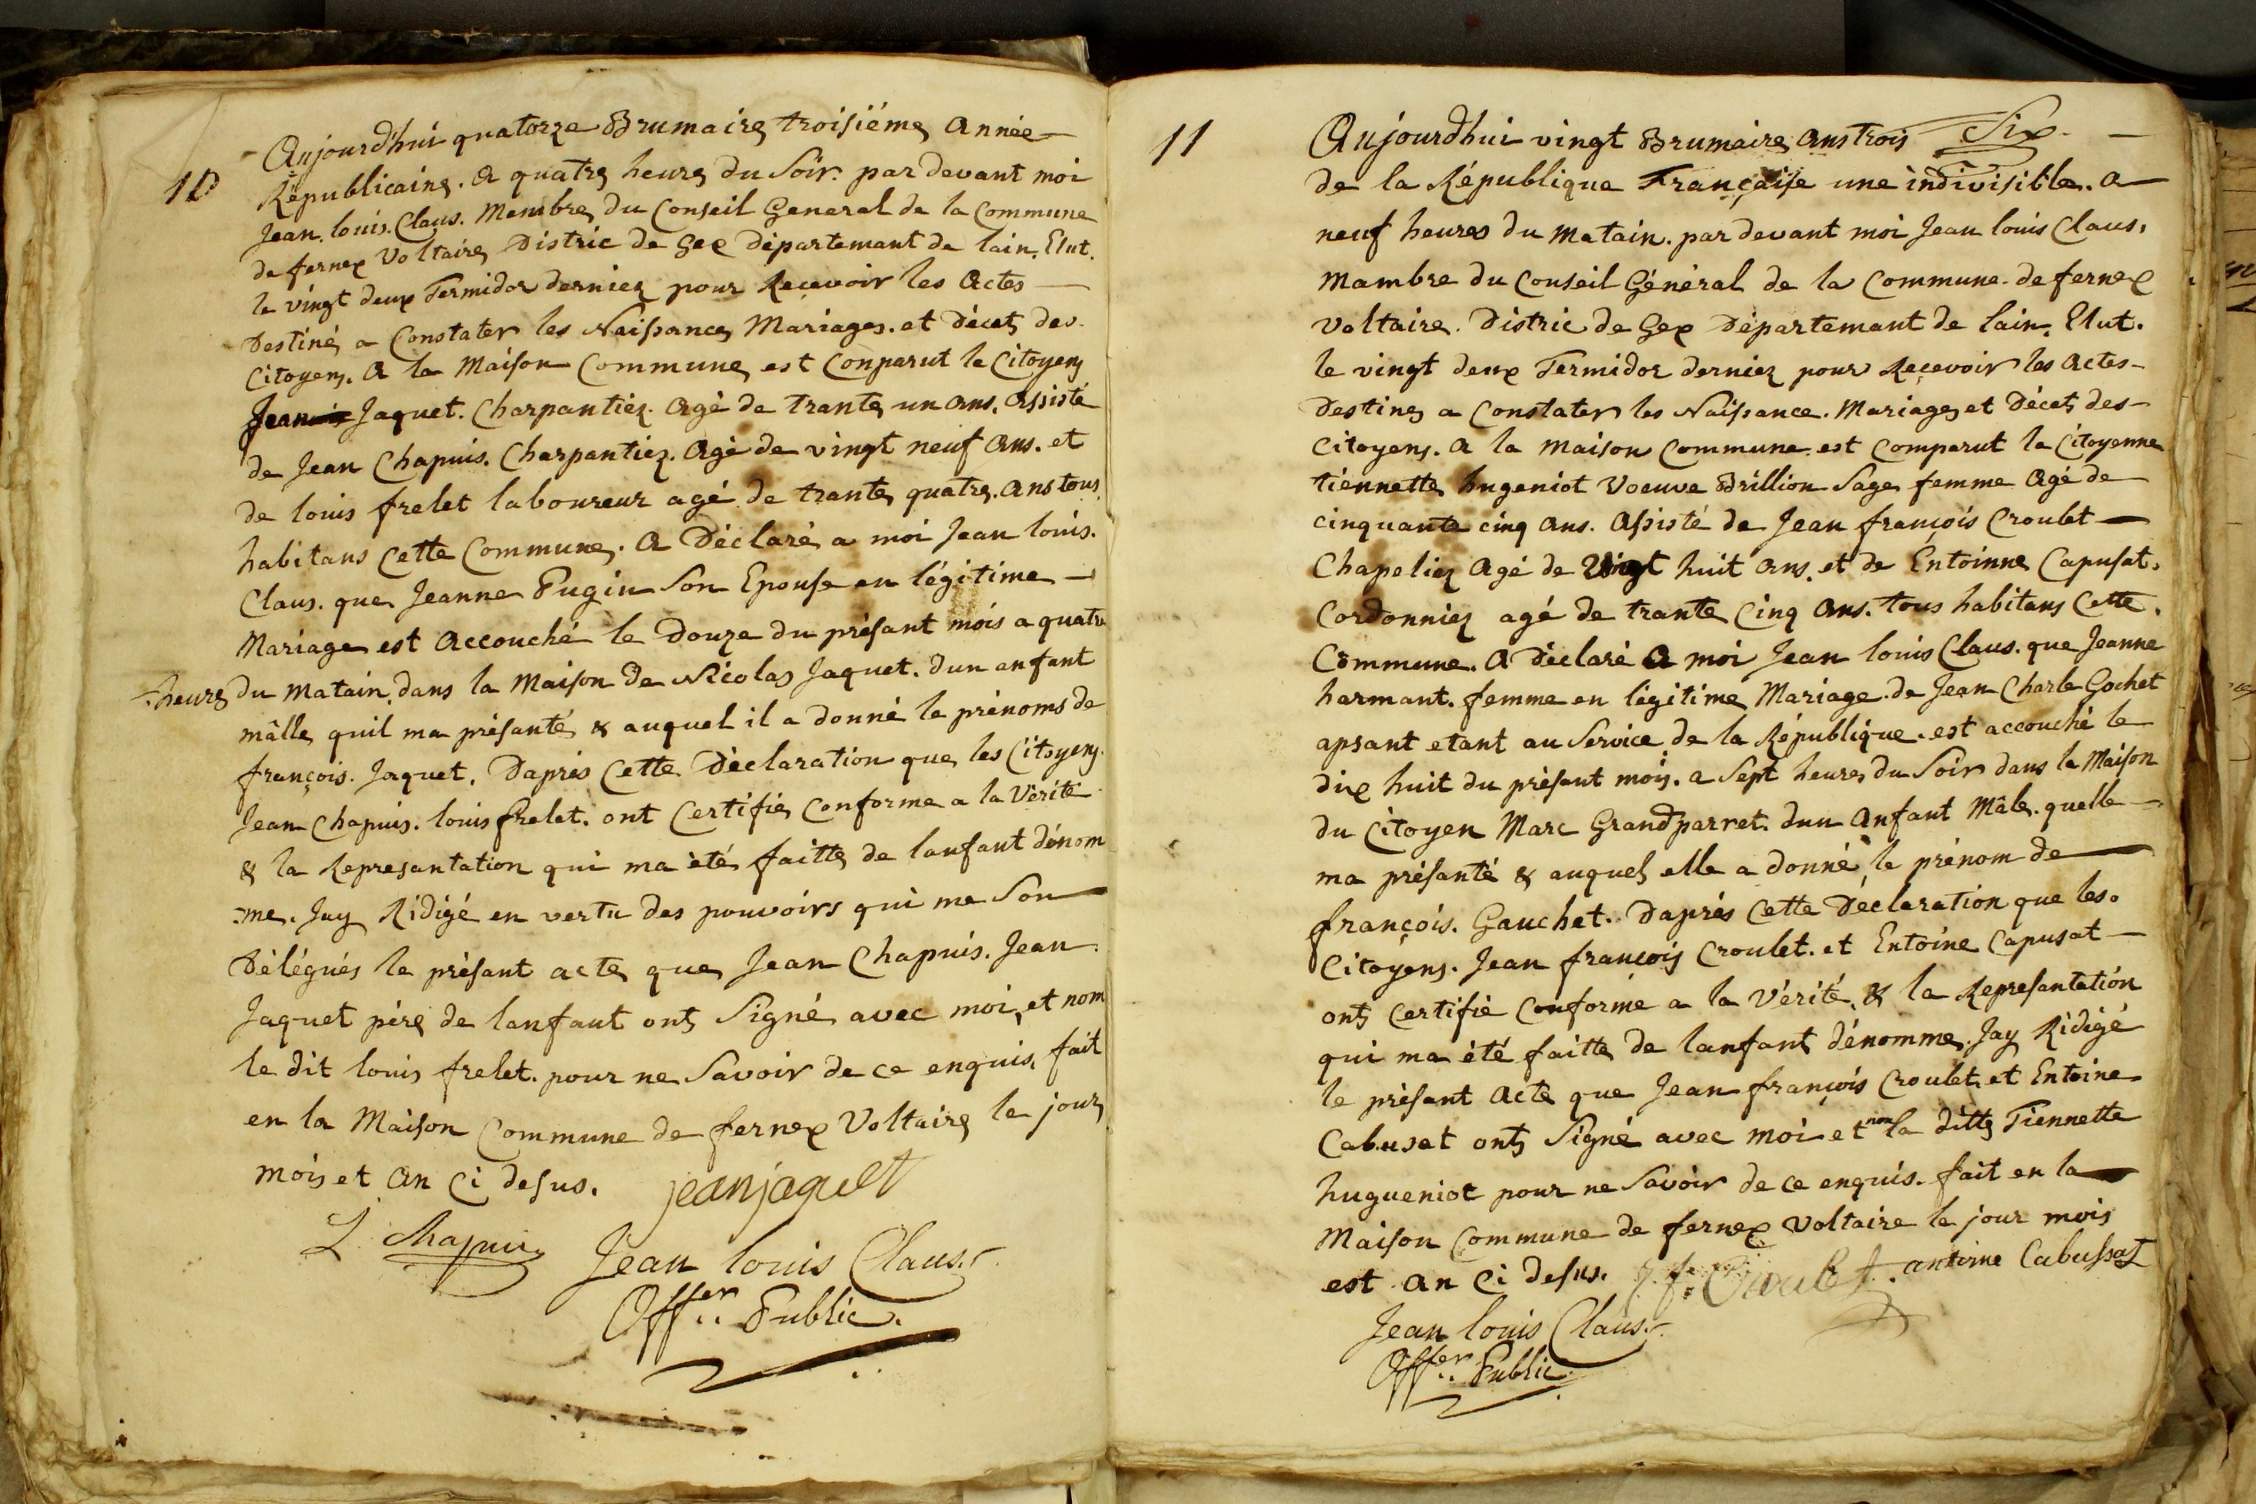 10
Aujourdhui quatorze Brumaire troisiéme année
Républicaine. a quatre heure du Soir. par devant moi
Jean. louis. Claus. Membre du Conseil General de la Commune
de fernex Voltaire Distric de Gex Département de lain. Elut.
le vingt deux Termidor dernier pour Recevoir les Actes
Destiné a Constater les Naissance Mariages. et Décet des
Citoyens. a la Maison Commune est Conparut le Citoyens
Jean Jaquet. Charpantier. agé de trante un ans. assisté
de Jean Chapuis. Charpantier. agé de vingt neuf ans. et
de louis frelet laboureur agé de trante quatre. ans tous
habitans Cette Commune. a Déclaré a moi Jean louis.
Claus. que Jeanne Pugin Son Epouse en légitime
Mariage est accouché le Douze du présant mois a quatre
-heure du matain dans la Maison de Nicolas Jaquet. dun anfant
mâlle quil ma présanté & auquel il a donné le prénoms de
françois. Jaquet. Daprés Cette Déclaration que les Citoyens.
Jean Chapuis. louis frelet. ont Certifié Conforme a la Vérité
& la Represantation qui ma été faitte de lanfant dénom
:me. Jay Rédigé en vertu des pouvoirs qui me Son
Délégués le présant acte que Jean Chapuis. Jean
Jaquet pére de lanfant ont Signé avec moi, et nom
le dit louis frelet. pour ne Savoir de ce enquis. fait
en la Maison Commune de fernex Voltaire le jour
mois et an Ci desus. jeanjaquet
L Chapuis Jean louis Claus.
Offer.. Public.
11
Aujourdhui vingt Brumaire ans trois Six
de la République Française une indivisible. a
neuf heures du matain. par devant moi Jean louis Claus.
Mambre du Conseil Général de la Commune de fernex
Voltaire. Distric de Gex Département de lain. Elut.
le vingt deux Termidor dernier pour Recevoir les actes
Destine a Constater les Naissance. Mariage et Décet des
Citoyens. a la maison Commune est Comparut la Citoyenne
tiennette hugeniot Voeuve Brillion Sage femme Agé de
cinquante cinq ans. assisté de Jean françois Croulet
Chapelier agé de Vingt huit ans. et de Entoinne Capusat.
Cordonnier agé de trante Cinq ans. tous habitans Cette.
Commune. a Déclaré a moi Jean louis Claus. que Jeanne
harmant. femme en légitime Mariage de Jean Charle Gochet
apsant etant au Service de la République. est accouché le
dix huit du présant mois. a Sept heure du Soir dans la Maison
du Citoyen Marc Grandparret. dun anfant Mâle. quelle
ma présanté & auquel elle a donné le prénom de
françois. Gauchet. Daprés Cette Déclaration que les.
Citoyens. Jean françois Croulet. et Entoine Capusat
ont Certifié Conforme a la Vérité. & la Represantation
qui ma été faitte de lanfant dénomme. Jay Rédigé
le présant acte que Jean françois Croulet et Entoine
Cabuset ont Signé avec moi et non la ditte Tiennette
hugueniot pour ne Savoir de ce enquis. fait en la
Maison Commune de fernex Voltaire le jour mois
est an Ci desus. J. f: Croulet. antoine Cabussat
Jean louis Claus.
Offer.. Public.